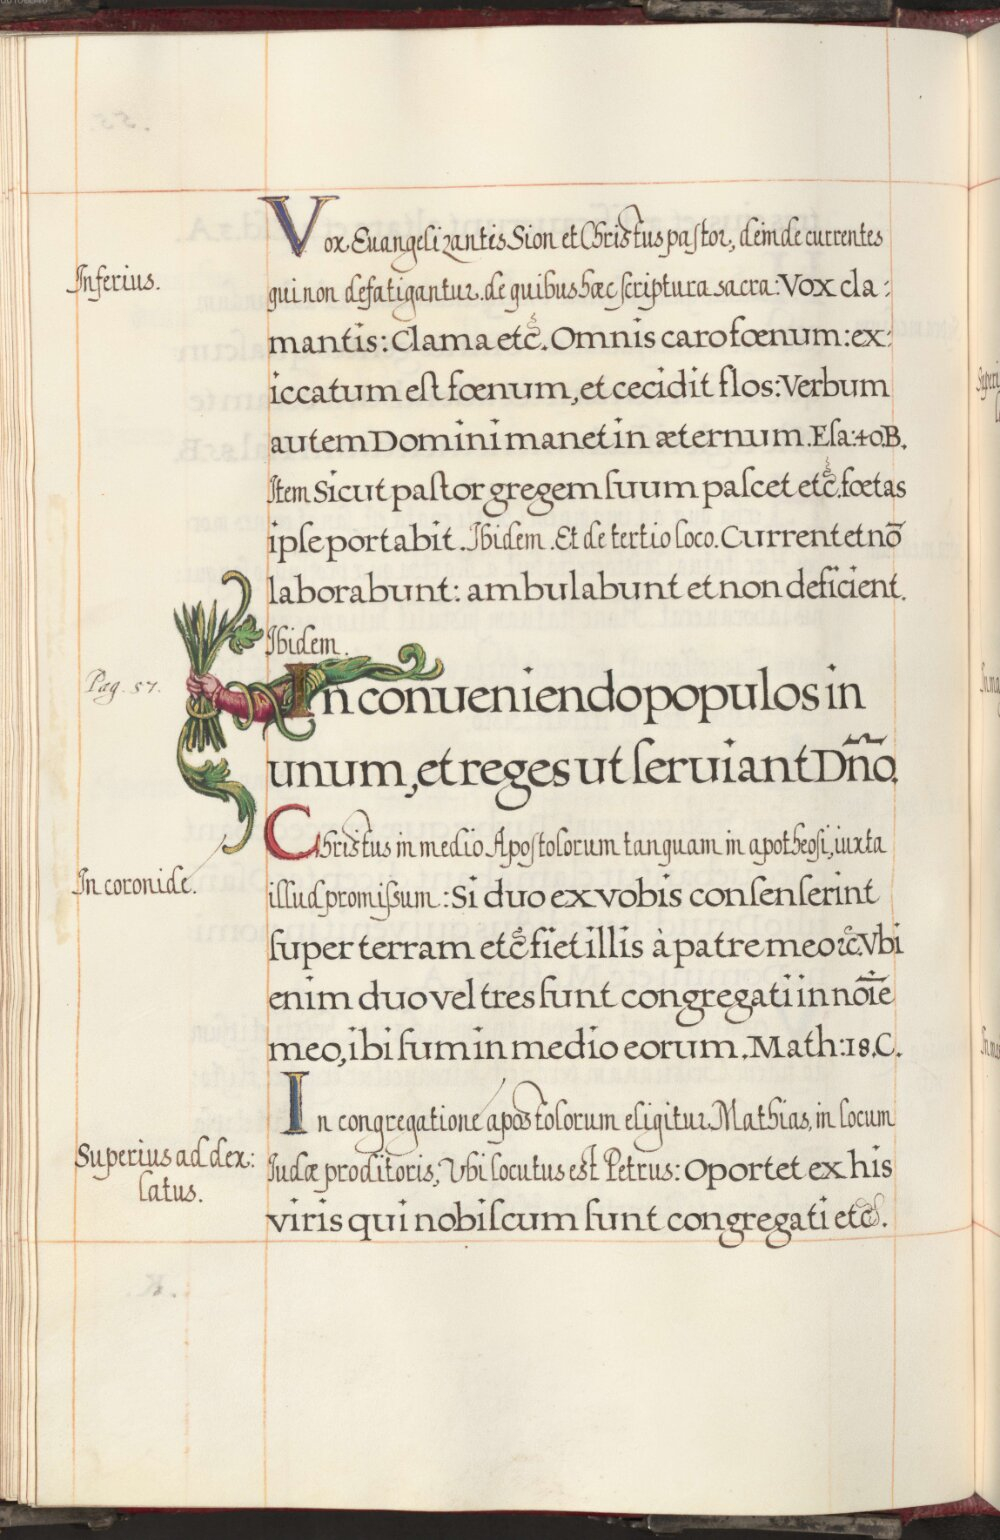 Vox Euangelizantis Sion et Christus pastor, deinde currentes
Inferius.
qui non defatigantur. de quibus hæc scriptura sacra: Vox cla:
mantis: Clama etc̃. Omnis caro fœnum: ex:
iccatum est fœnum, et cecidit flos: Verbum
autem Domini manet in æternum. Esa: 40 B.
Item Sicut pastor gregem suum pascet etc̃. fœtas
ipse portabit. Ibidem. Et de tertio loco. Current et nõ
laborabunt: ambulabunt et non deficient.
Ibidem.
Pag. 57.
In conueniendo populos in
unum, et reges ut seruiant Dño.
Christus in medio Apostolorum tanquam in apotheosi, iuxta
In coronide.
illud promissum: Si duo ex vobis consenserint
super terram etc̃ fiet illis à patre meo ꝛc̃. Vbi
enim duo vel tres sunt congregati in noĩe
meo, ibi sum in medio eorum. Math: 18. C.
In congregatione apostolorum eligitur Mathias, in locum
Superius ad dex:
latus.
Iudæ proditoris; Vbi locutus est Petrus: Oportet ex his
viris qui nobiscum sunt congregati etc̃.